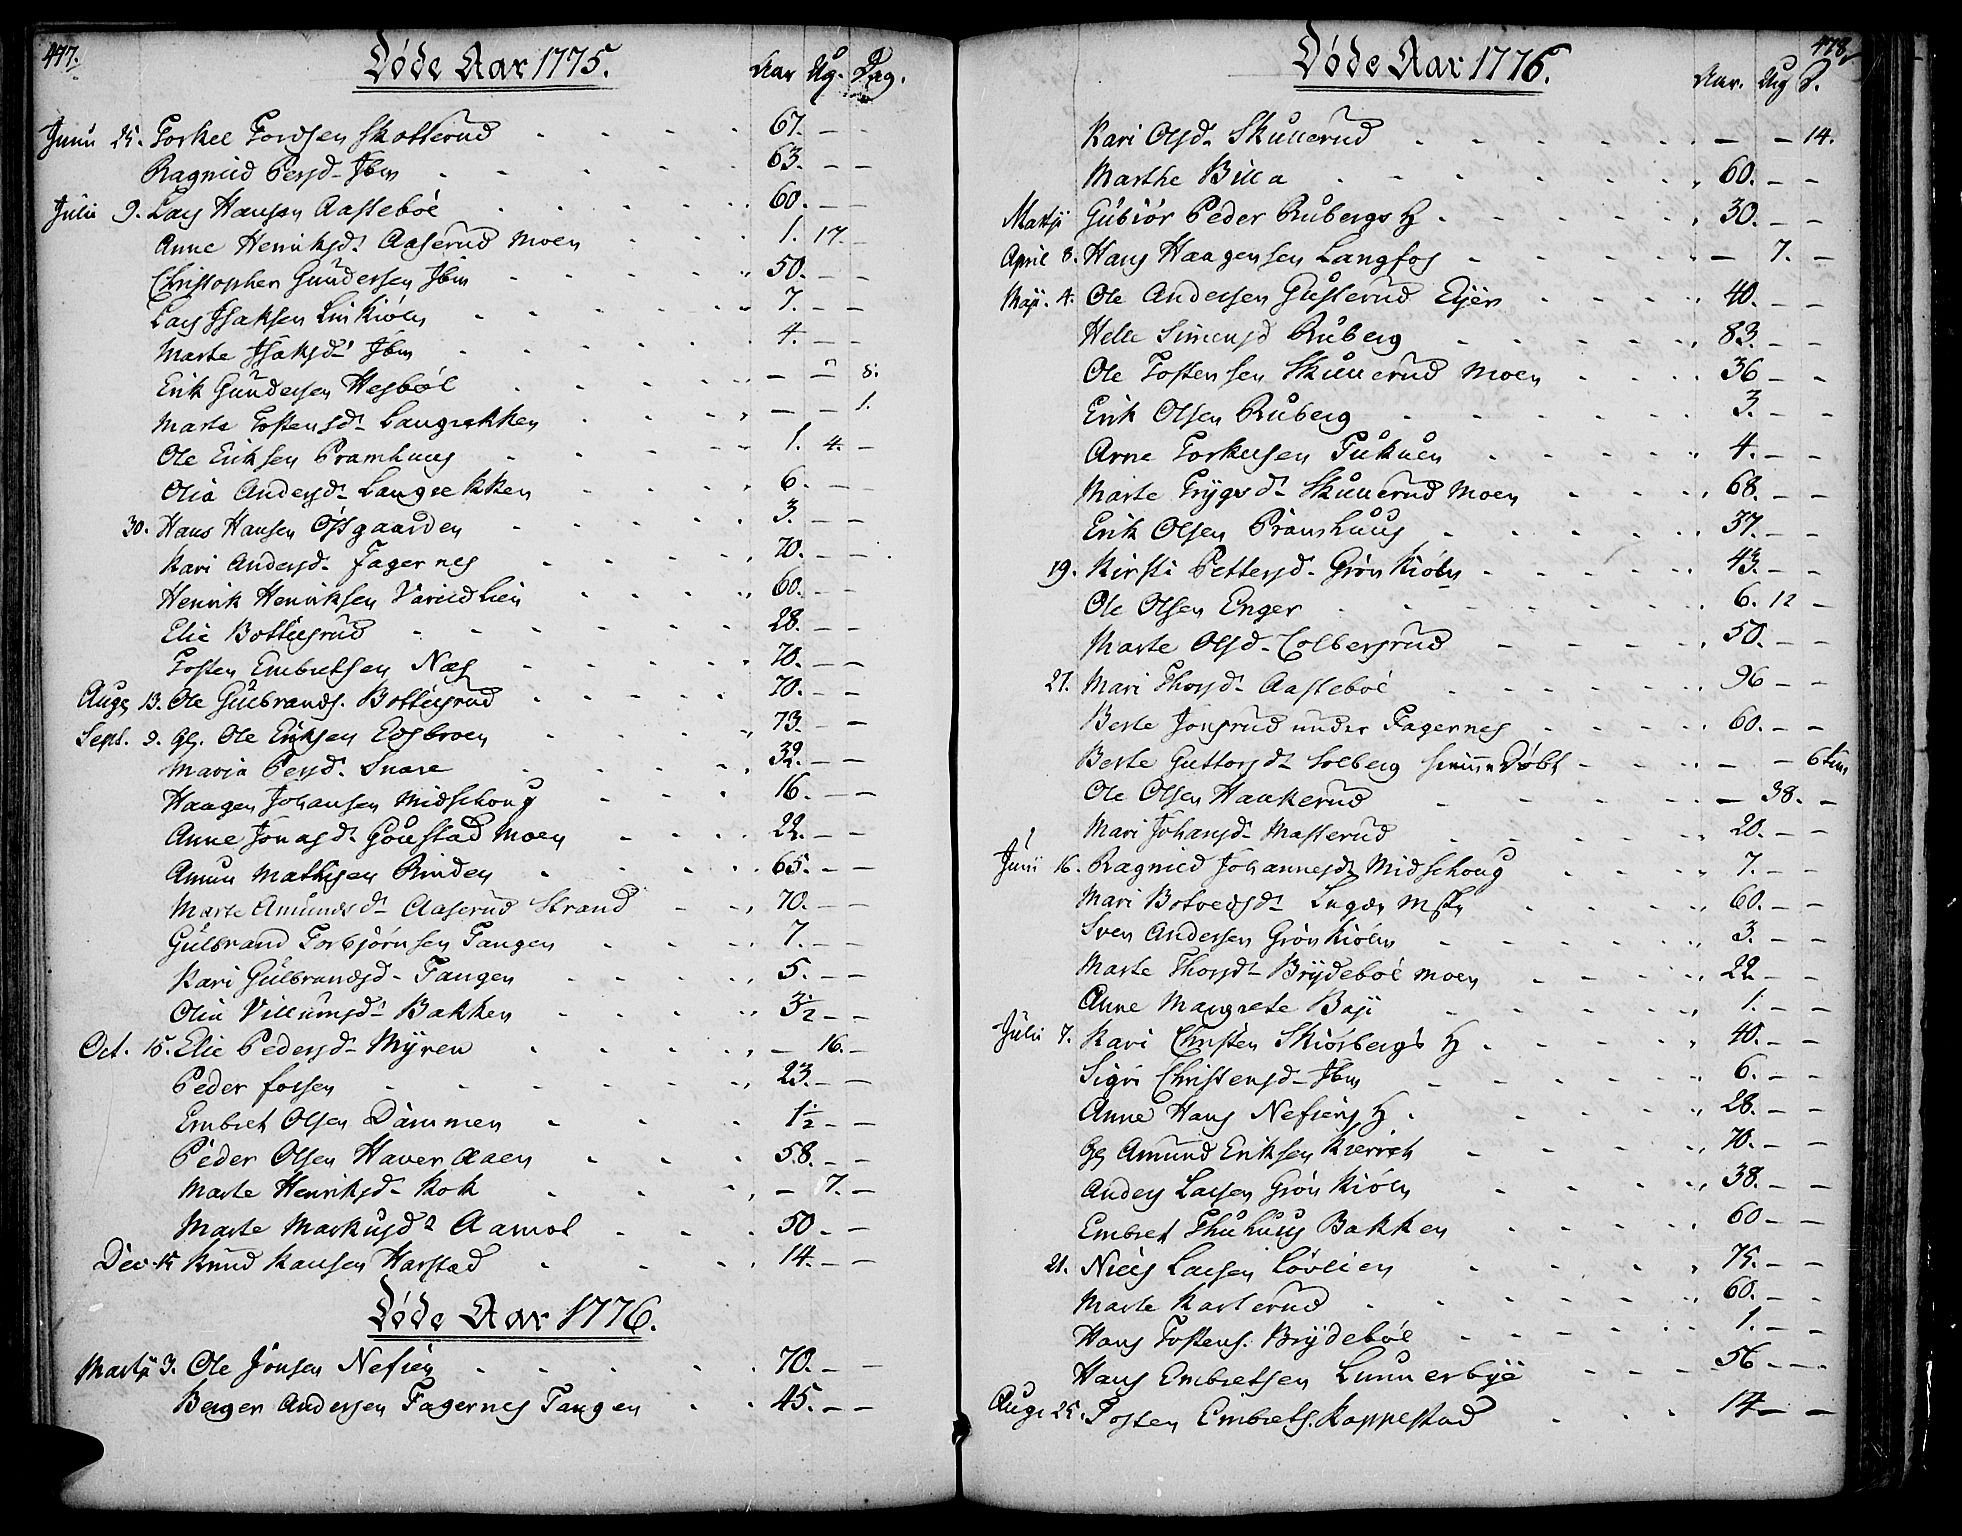 477.
Døde Aar 1775.
Aar Ug. Dag.
Junii 25. Torkel Tordsen Skotterud 67. — —
Ragnild Persd. Ibm 63. — —
Julii 9. Lars Hansen Aasteböe 60. — —
Anne Henriksd. Aaserud Moen 1. 17. —
Christopher Gundersen Ibm 50. — —
Lars Isaksen Linkiöln 7. — —
Marte Isaksd. Ibm 4. — —
Erik Gundersen Hesböl — — 8.
Marte Tostensd. Langrekken — — 1.
Ole Eriksen Pramhuus 1. 4. —
Olia Andersd. Langrekken 6. — —
30. Hans Hansen Östgaarden 3. — —
Kari Andersd. Fagernes 70. — —
Henrik Henriksen Varildlien 60. — —
Elie Bottilsrud 28. — —
Tosten Embretsen Næs 70. — —
Aug. 13. Ole Gulbrands. Bottilsrud 70. — —
Sept. 9. Gl. Ole Eriksen Edsbroen 73. — —
Maria Persd. Snare 32. — —
Haagen Johansen Midschoug 16. — —
Anne Jonasd. Goustad Moen 22. — —
Amun Mathisen Rinden 65. — —
Marte Amundsd. Aaserud Strand 70. — —
Gulbrand Torbjörnsen Tangen 7. — —
Kari Gulbrandsd. Tangen 5. — —
Olia Villumsd. Bakken 3½ — —
Oct. 15. Elie Pedersd. Myren — 16. —
Peder Fossen 23. — —
Embret Olsen Dammen 1½ — —
Peder Olsen Haver Aaen 58. — —
Marte Henriksd. Kok — 7. —
Marte Markusd. Aamot 50 — —
Dec. 15 Knud Hansen Harstad 14. — —
Døde Aar 1776.
Martÿ 3. Ole Jonsen Nefsien 70. — —
Berger Andersen Fagernes Tangen 45. — —
478
Døde Aar 1776.
Aar. Ug D.
Kari Olsd. Skullerud — — 14.
Marthe Billa 60. — —
Martji Gubiör Peder Rubergs H. 30. — —
April 8. Hans Haagensen Langfos — 7. —
Maji. 4. Ole Andersen Gusterud Ejer 40. — —
Helle Simensd Ruberg 83. — —
Ole Tostensen Skullerud Moen 36 — —
Erik Olsen Ruberg 3. — —
Arne Torkelsen 4. — —
Marte Trygsd. Skullerud Moen 68. — —
Erik Olsen Pramhuus 37. — —
19. Kirsti Pettersd. Grönkiöln 43. — —
Ole Olsen Enger 6. 12 —
Marte Olsd. Colbersrud 50. — —
27. Mari Thorsd. Aasteböe 96 — —
Berte Jonsrud under Fagernes 60. — —
Berte Guttorsd. Solberg hiemme Döbt — — 6 tim
Ole Olsen Haukerud — 38. —
Mari Johansd. Masterud 20. — —
Junii 16. Ragnild Johannesd. Midschoug 7. — —
Mari Botvedsd. 60. — —
Sven Andersen Grönkiöln 3. — —
Marte Thorsd. Brÿdeböl Moen 22. — —
Anne Margrete Baji 1. — —
Julii 7. Kari Christen Skiörbergs H 40. — —
Sigri Christensd. Ibm 6. — —
Anne Hans Nefsiens H. 28. — —
Gl Amund Eriksen 70. — —
Anders Larsen Grönkiöln 38. — —
Embret Thuhuus Bakken 60 — —
21. Niels Larsen Lövlien 75. — —
Marte Karterud 60. — —
Hans Tostens. Brÿdeböl 1. — —
Hans Embretsen Lunnerbÿe 56 — —
Aug. 25. Tosten Embrets. Koppestad 14 — —